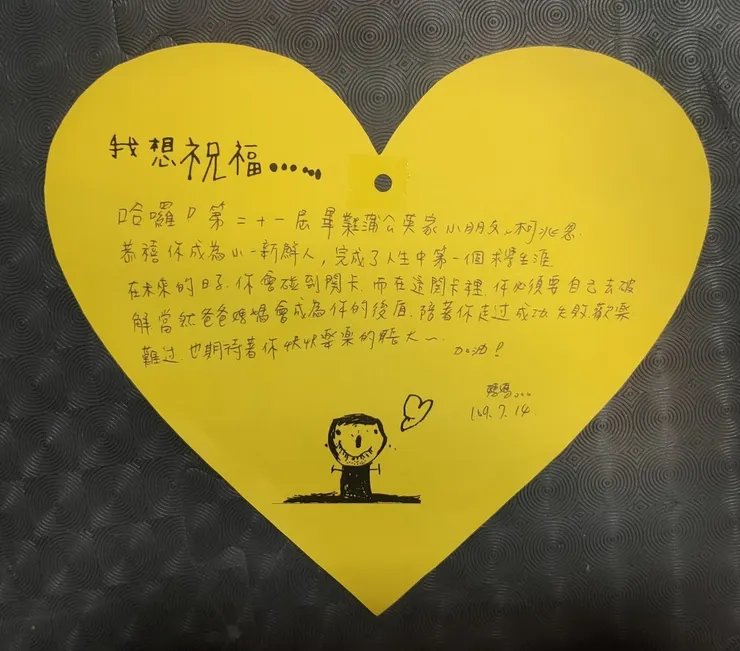 我想祝福......
哈囉!第二十一屆畢業蒲公英家小朋友~柯兆恩.
恭禧你成為小一新鮮人,完成了人生中第一個求學生涯
在未來的日子.你會碰到関卡.而在這関卡裡.你必須要自己去破
解當然爸爸媽媽會成為你的後盾.陪著你走过成功失敗歡樂
難过.也期待著你快快樂樂的長大~.
加油!
媽媽...
109.7.14.